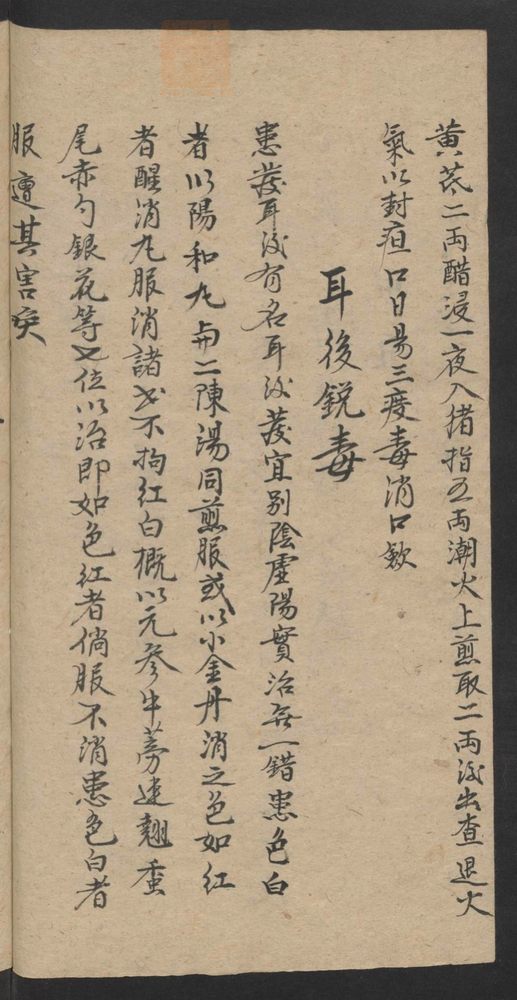 黄芪二両醋浸一夜入猪指五両潮火上煎取二両後出查退火
氣以封疽口日昜三度毒消口歛
耳後銳毒
患發耳後有名耳後發宜别陰虛陽實治無一錯患色白
者以陽和丸與二陳湯同煎服或以小金丹消之色如紅
者醒消丸服消諸書不拘紅白概以元參牛蒡連翹蚤
尾赤勺銀花等之位以治即如色紅者倘服不消患色白者
服遭其害矣